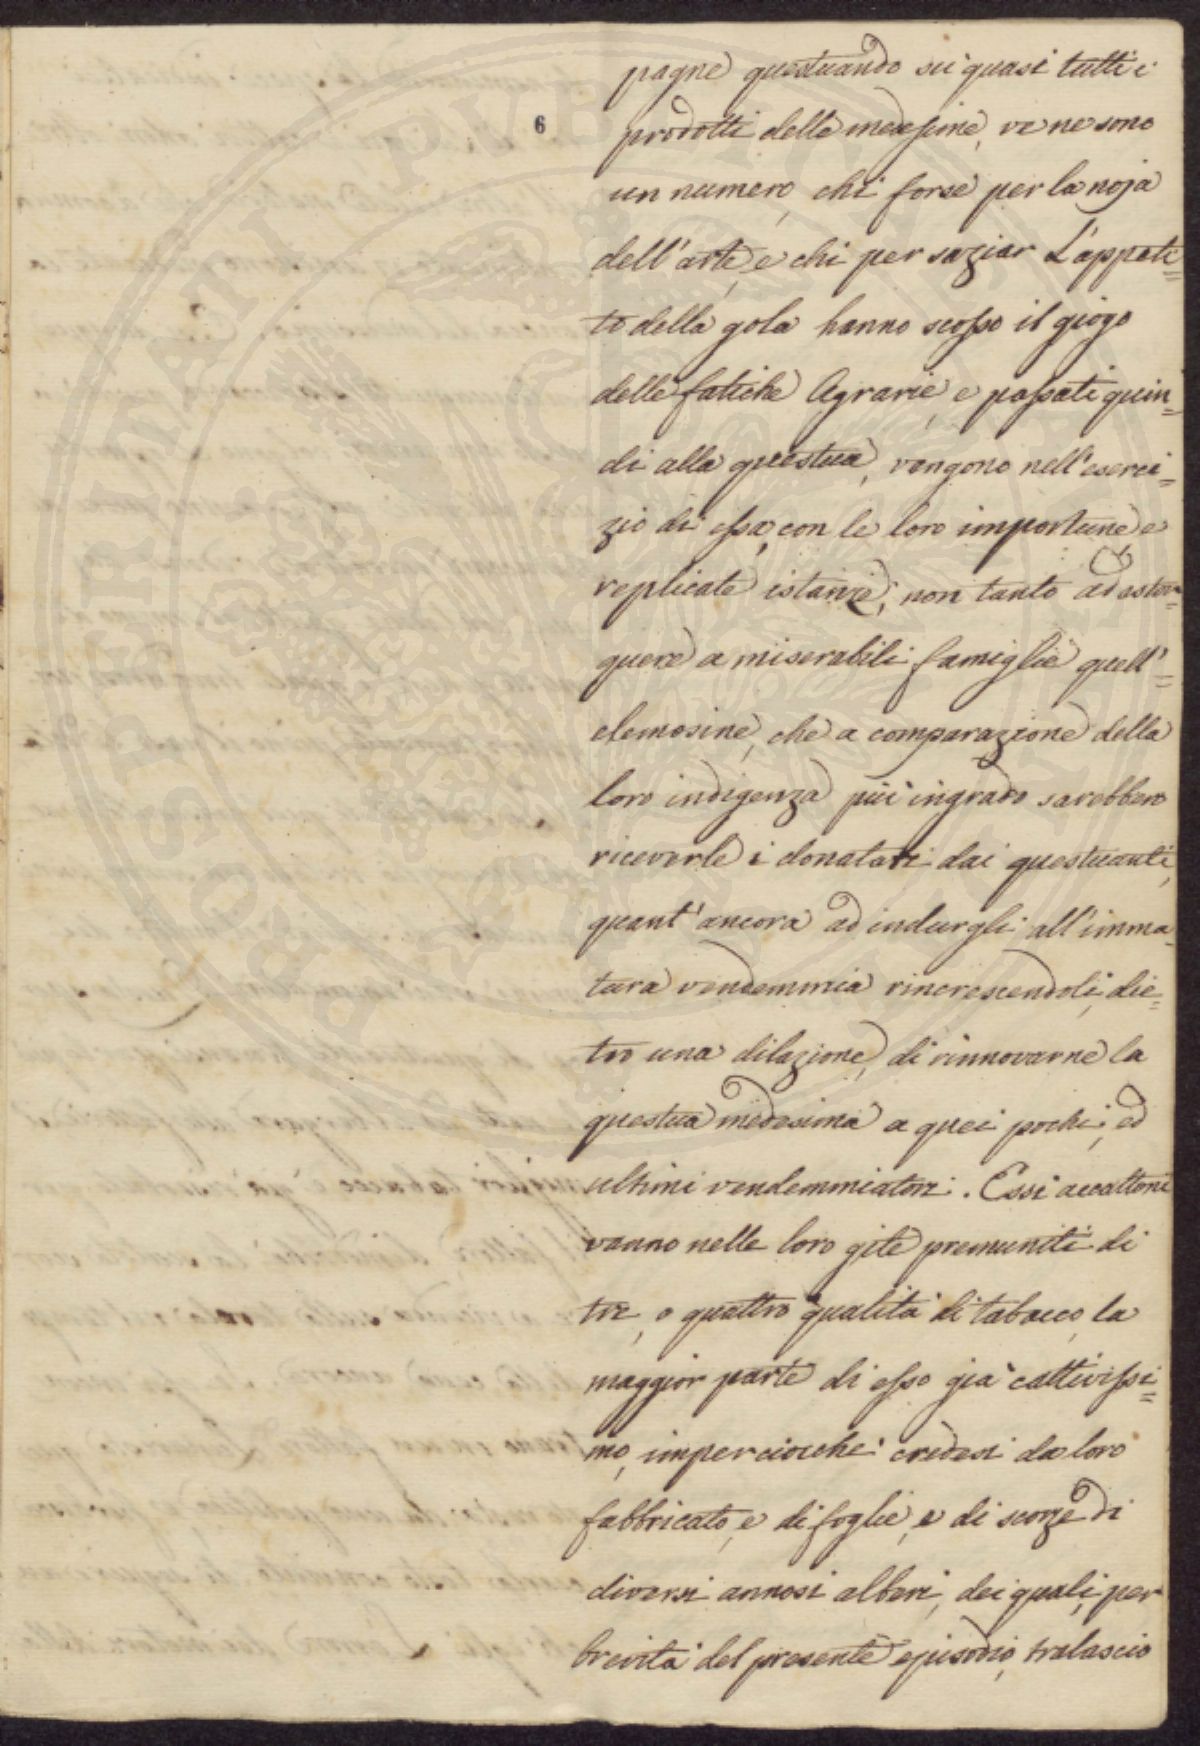 6
pagne questuando sù quasi tutti i
prodotti delle medesime, ve ne sono
un numero, chi forse per la noja
dell'arte, e chi per saziar L'appeti=
to della gola hanno scosso il giogo
delle fatiche Agrarie, e passati quin=
di alla questua, vengono nell'eserci=
zio di essa, con le loro importune, e
replicate istanze, non tanto ad estor=
quere a miserabili famiglie quell'=
elemosine, che a comparazione della
loro indigenza più ingrado sarebbero
riceverle i donatarj dai questuanti,
quant'ancora ad indurgli all'imma=
tura vendemmia rincrescendoli, die=
tro una dilazione, di rinnovarne la
questua medesima a quei pochi, ed
ultimi vendemmiatori. Essi accattoni
vanno nelle loro gite premuniti di
tre, o quattro qualità di tabacco, la
maggior parte di esso già cattivissi=
mo, imperciocchè credesi da loro
fabbricato, e di foglie, e di scorze di
diversi annosi alberi, dei quali, per
brevità del presente episodio, tralascio
PROSTIPERINATI PUBLICA